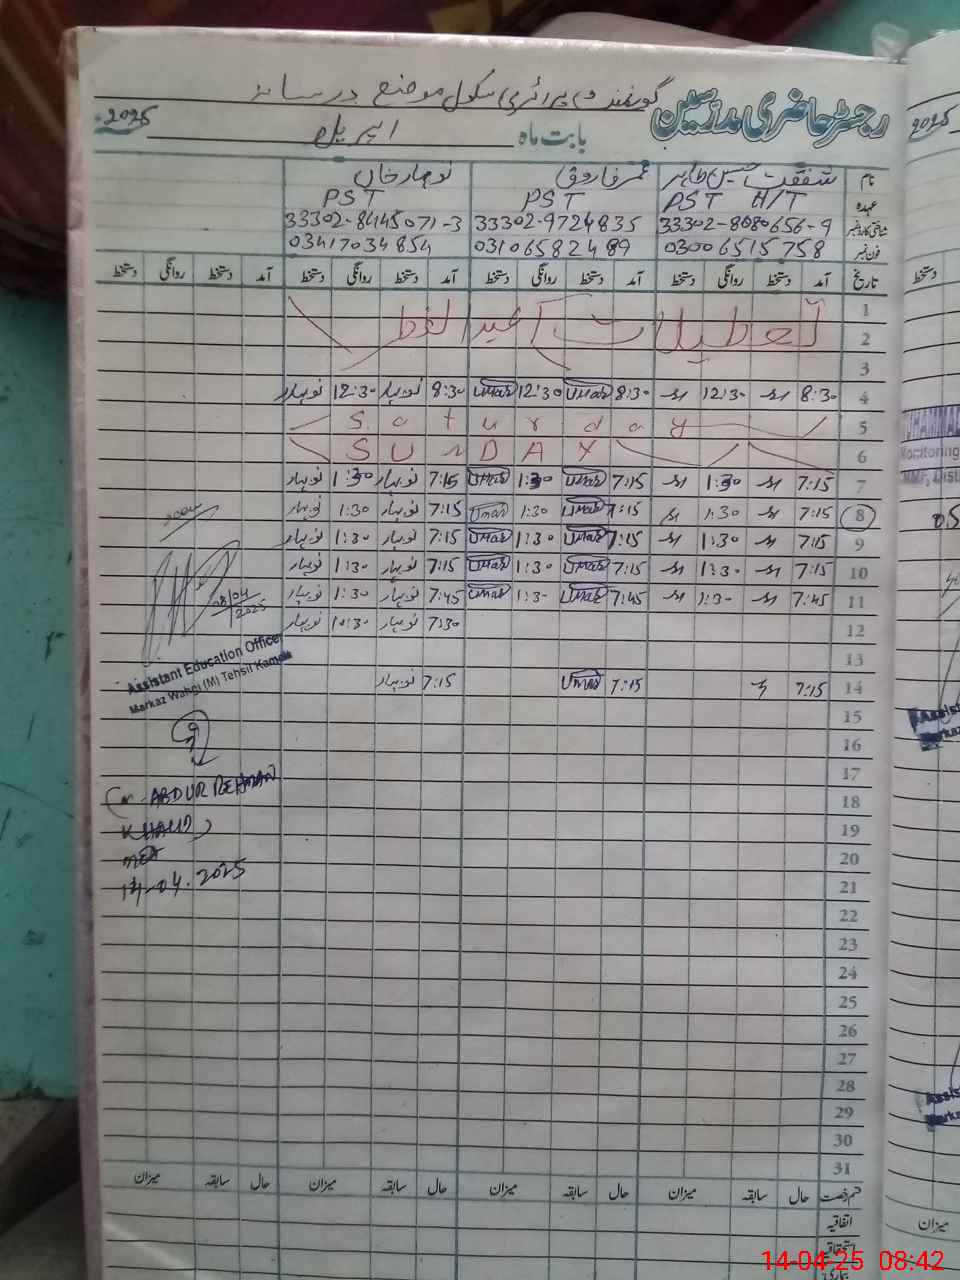 گورنمنٹ پرائمری سکول موضع درسانہ
رجسٹر حاضری مدرسین
بابت ماہ اپریل 2025
نام شفقت حسین طاہر عمر فاروق نوبہار خان
عہدہ PST H/T PST PST
شناختی کارڈ نمبر 33302-8080656-9 33302-9724835 33302-8445071-3
فون نمبر 03006515758 03106582489 03417034854
تاریخ آمد دستخط روانگی دستخط آمد دستخط روانگی دستخط آمد دستخط روانگی دستخط آمد دستخط روانگی دستخط
1
2 تعطیلات عید الفطر
3
4 8:30 12:30 8:30 Umar 12:30 Umar 8:30 نوبہار 12:30 نوبہار
5 Saturday
6 SUNDAY
7 7:15 1:30 7:15 Umar 1:30 Umar 7:15 نوبہار 1:30 نوبہار
8 7:15 1:30 7:15 Umar 1:30 Umar 7:15 نوبہار 1:30 نوبہار
9 7:15 1:30 7:15 Umar 1:30 Umar 7:15 نوبہار 1:30 نوبہار
10 7:15 1:30 7:15 Umar 1:30 Umar 7:15 نوبہار 1:30 نوبہار
11 7:45 1:30 7:45 Umar 1:30 Umar 7:45 نوبہار 1:30 نوبہار
12 7:30 نوبہار 10:30 نوبہار
13
14 7:15 7:15 Umar 7:15 نوبہار
15
16
17
18
19
20
21
22
23
24
25
26
27
28
29
30
31
08/04/2025
Assistant Education Officer
Markaz Wahgi (M) Tehsil Kamalia
ABDUR REHMAN
KHALID
14-04-2025
قسم رخصت حال سابقہ میزان حال سابقہ میزان حال سابقہ میزان حال سابقہ میزان
اتفاقیہ
استحقاقیہ
بیماری
2025
دستخط
Monitoring
MMF, Dist
Assis
Markaz
Assis
Markaz
میزان
14-04-25 08:42